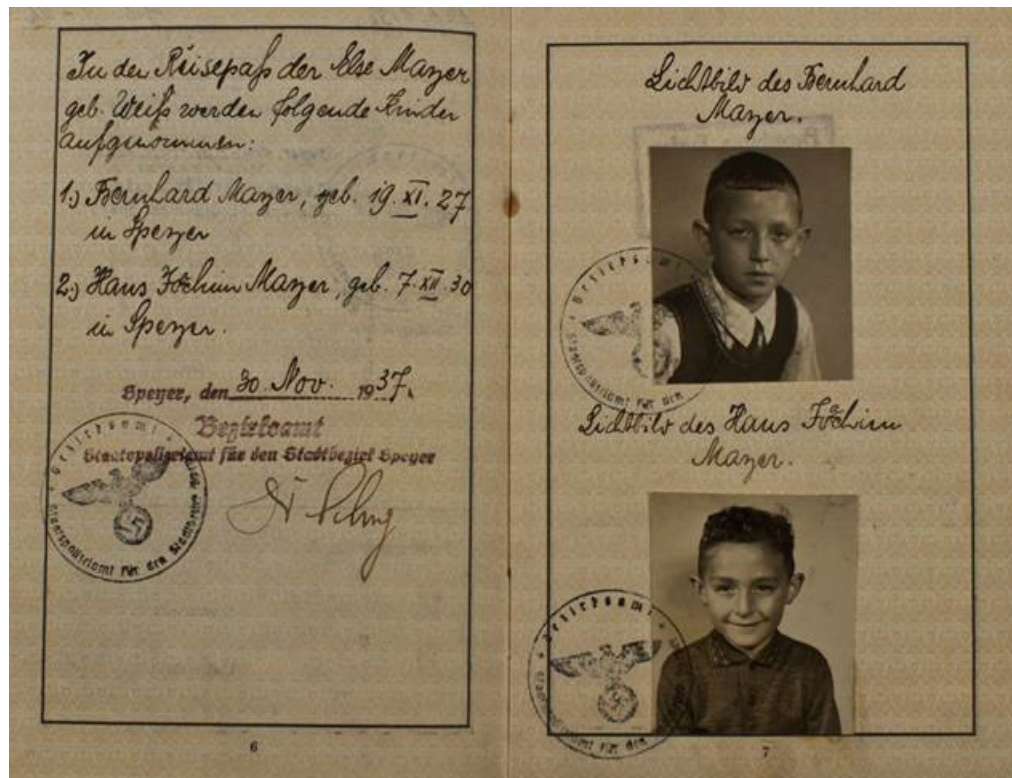 In den Reisepaß der Else Mayer
geb. Weiß werden folgende Kinder
aufgenommen:
1.) Bernhard Mayer, geb. 19. XI. 27
in Speyer
2.) Hans Jochim Mayer, geb. 7. XII. 30
in Speyer.
Speyer, den 30 Nov. 1937.
Bezirksamt
Staatspolizeiamt für den Stadtbezirk Speyer
Bezirksamt
Staatspolizeiamt für den Stadtbezirk
6
Lichtbild des Bernhard
Mayer.
Bezirksamt
Staatspolizeiamt für den
Lichtbild des Hans Jochim
Mayer.
Bezirksamt
Staatspolizeiamt für den
7